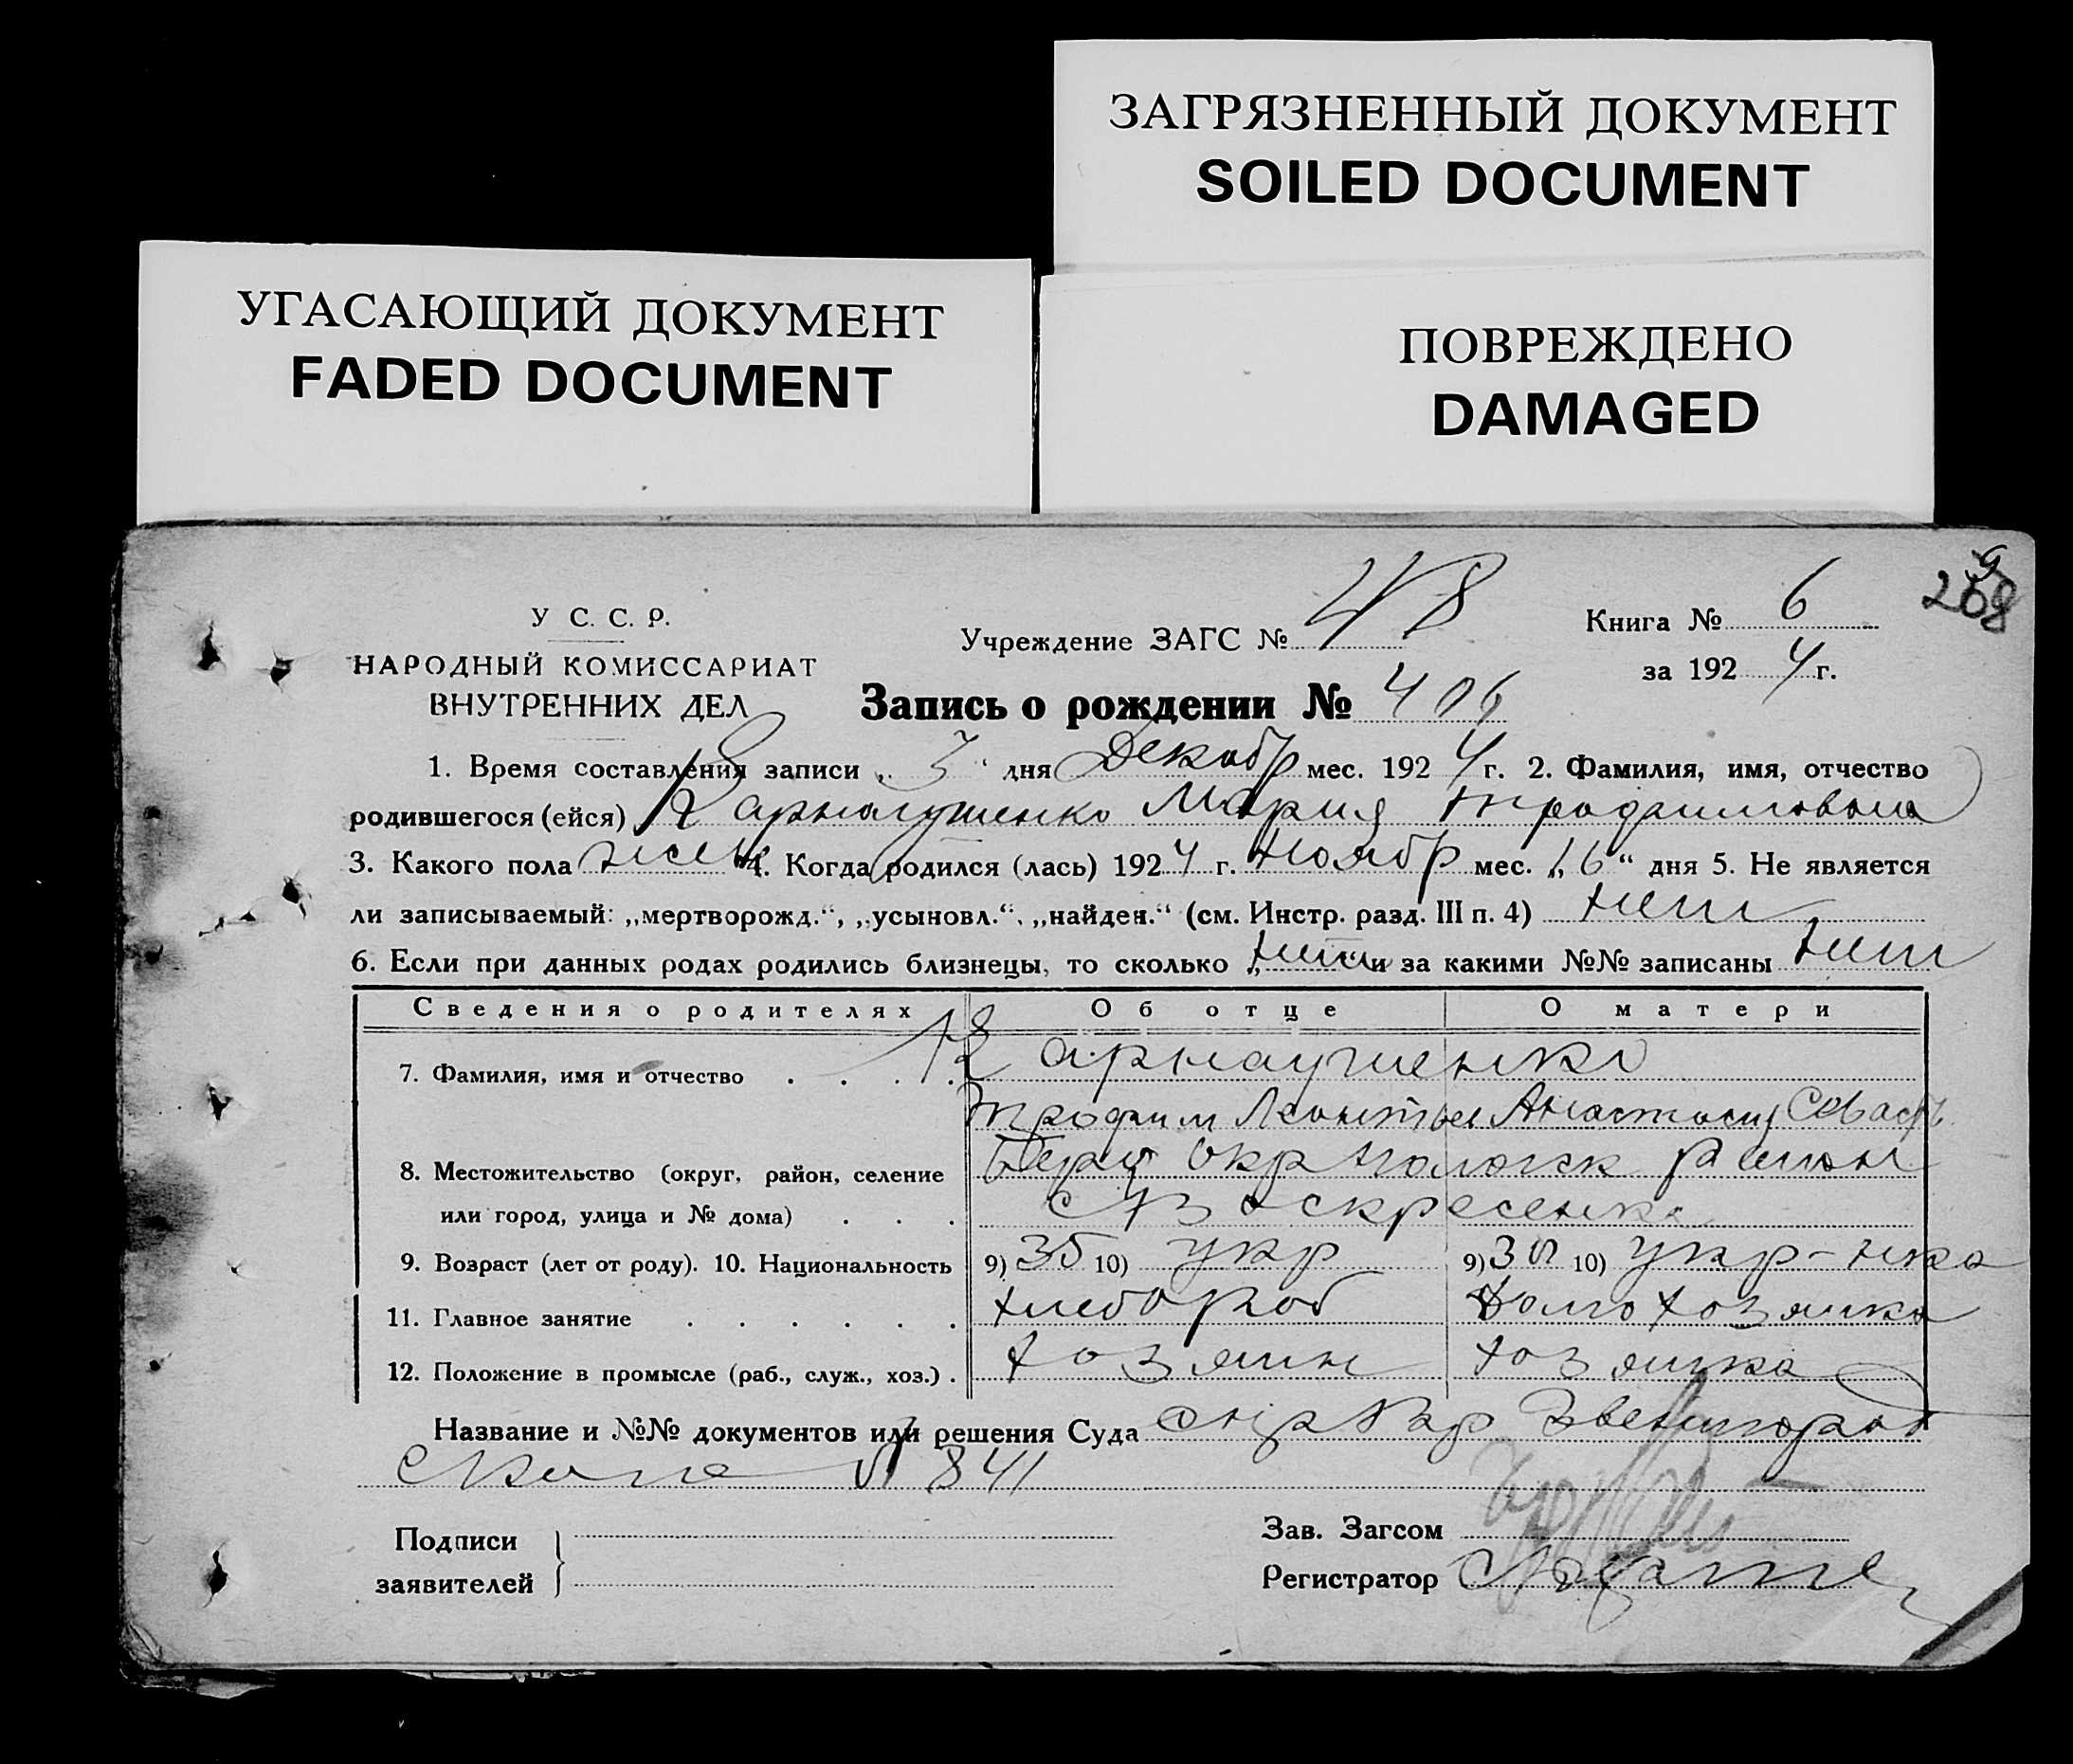 ЗАГРЯЗНЕННЫЙ ДОКУМЕНТ
SOILED DOCUMENT
УГАСАЮЩИЙ ДОКУМЕНТ
FADED DOCUMENT
ПОВРЕЖДЕНО
DAMAGED
У С. С. Р.
НАРОДНЫЙ КОМИССАРИАТ
ВНУТРЕННИХ ДЕЛ
Учреждение ЗАГС № 48
Книга № 6
за 1924 г.
Запись о рождении № 406
1. Время составления записи „ 3 " дня Декабр мес. 1924 г. 2. Фамилия, имя, отчество
родившегося (ейся) Карнаушенко Мария Трофимовна
3. Какого пола жен 4. Когда родился (лась) 1924 г. Ноябр мес. „16“ дня 5. Не является
ли записываемый: „мертворожд.“, „усыновл.“, „найден.“ (см. Инстр. разд. III п. 4) нет
6. Если при данных родах родились близнецы, то сколько „нет“ и за какими №№ записаны нет
Сведения о родителях Об отце О матери
7. Фамилия, имя и отчество . . . . Карнаушенко
Трофим Леонтьев Анастасия Севаст
8. Местожительство (округ, район, селение окр район
или город, улица и № дома) . . . с Воскресенка
9. Возраст (лет от роду). 10. Национальность 9) 35 10) укр 9) 30 10) укр-нка
11. Главное занятие . . . . . . хлебороб домохозяйка
12. Положение в промысле (раб., служ., хоз.) . хозяин хозяйка
Название и №№ документов или решения Суда
№ 841
Подписи
заявителей
Зав. Загсом
Регистратор